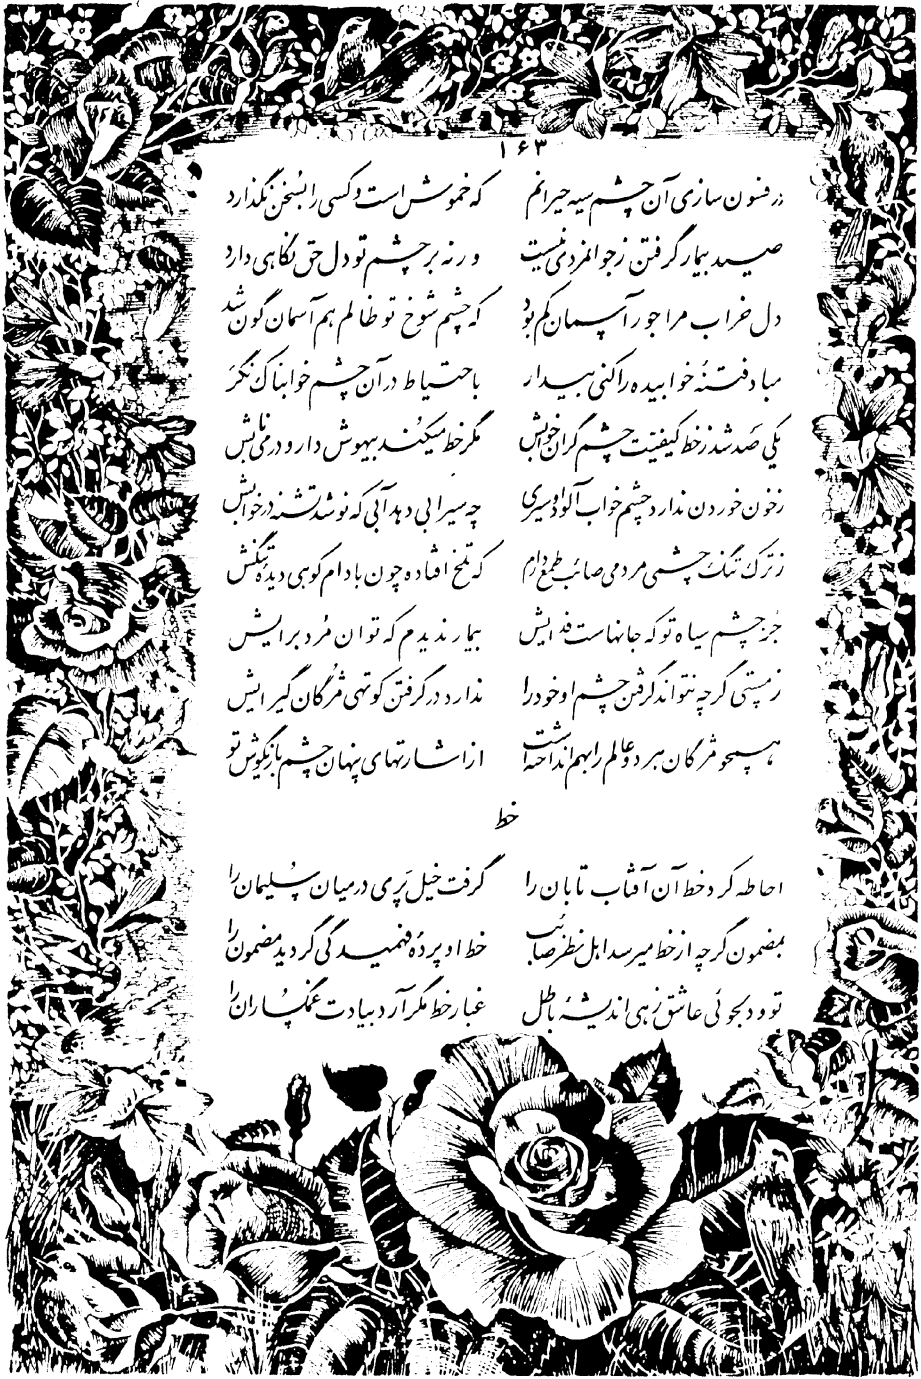 ۱۶۳
در فسون سازی آن چشم سیه حیرانم که خموش است و کسی را بسخن نگذارد
صید بیمار گرفتن ز جوانمردی نیست ورنه بر چشم تو دل حق نگاهی دارد
دل خراب مرا جور آسمان کم بود که چشم شوخ تو ظالم هم آسمان گون شد
مباد فتنهٔ خوابیده را کنی بیدار باحتیاط در آن چشم خوابناک نگر
یکی صد شد ز خط کیفیت چشم گران خوابش مگر خط میکند بیهوش دارو در می نابش
ز خون خوردن ندارد چشم خواب آلود او سیری چه سیرابی دهد آبی که نوشد تشنه در خوابش
ز ترک تنگ چشمی مردمی صائب طمع دارم که تلخ افتاده چون بادام کوهی دیدهٔ تنگش
جز چشم سیاه تو که جانهاست فدایش بیمار ندیدم که توان مرد برایش
ز مستی گرچه نتواند گرفتن چشم او خود را ندارد در گرفتن کوتهی مژگان گیرایش
همچو مژگان هر دو عالم را بهم انداخته است از اشارتهای پنهان چشم بازیگوش تو
خط
احاطه کرد خط آن آفتاب تابان را گرفت خیل پری در میان سلیمان را
بمضمون گرچه از خط میرسد اهل نظر صائب خط او پردهٔ فهمیدگی گردید مضمون را
تو و دلجوئی عاشق زهی اندیشهٔ باطل غبار خط مگر آرد بیادت غمگساران را